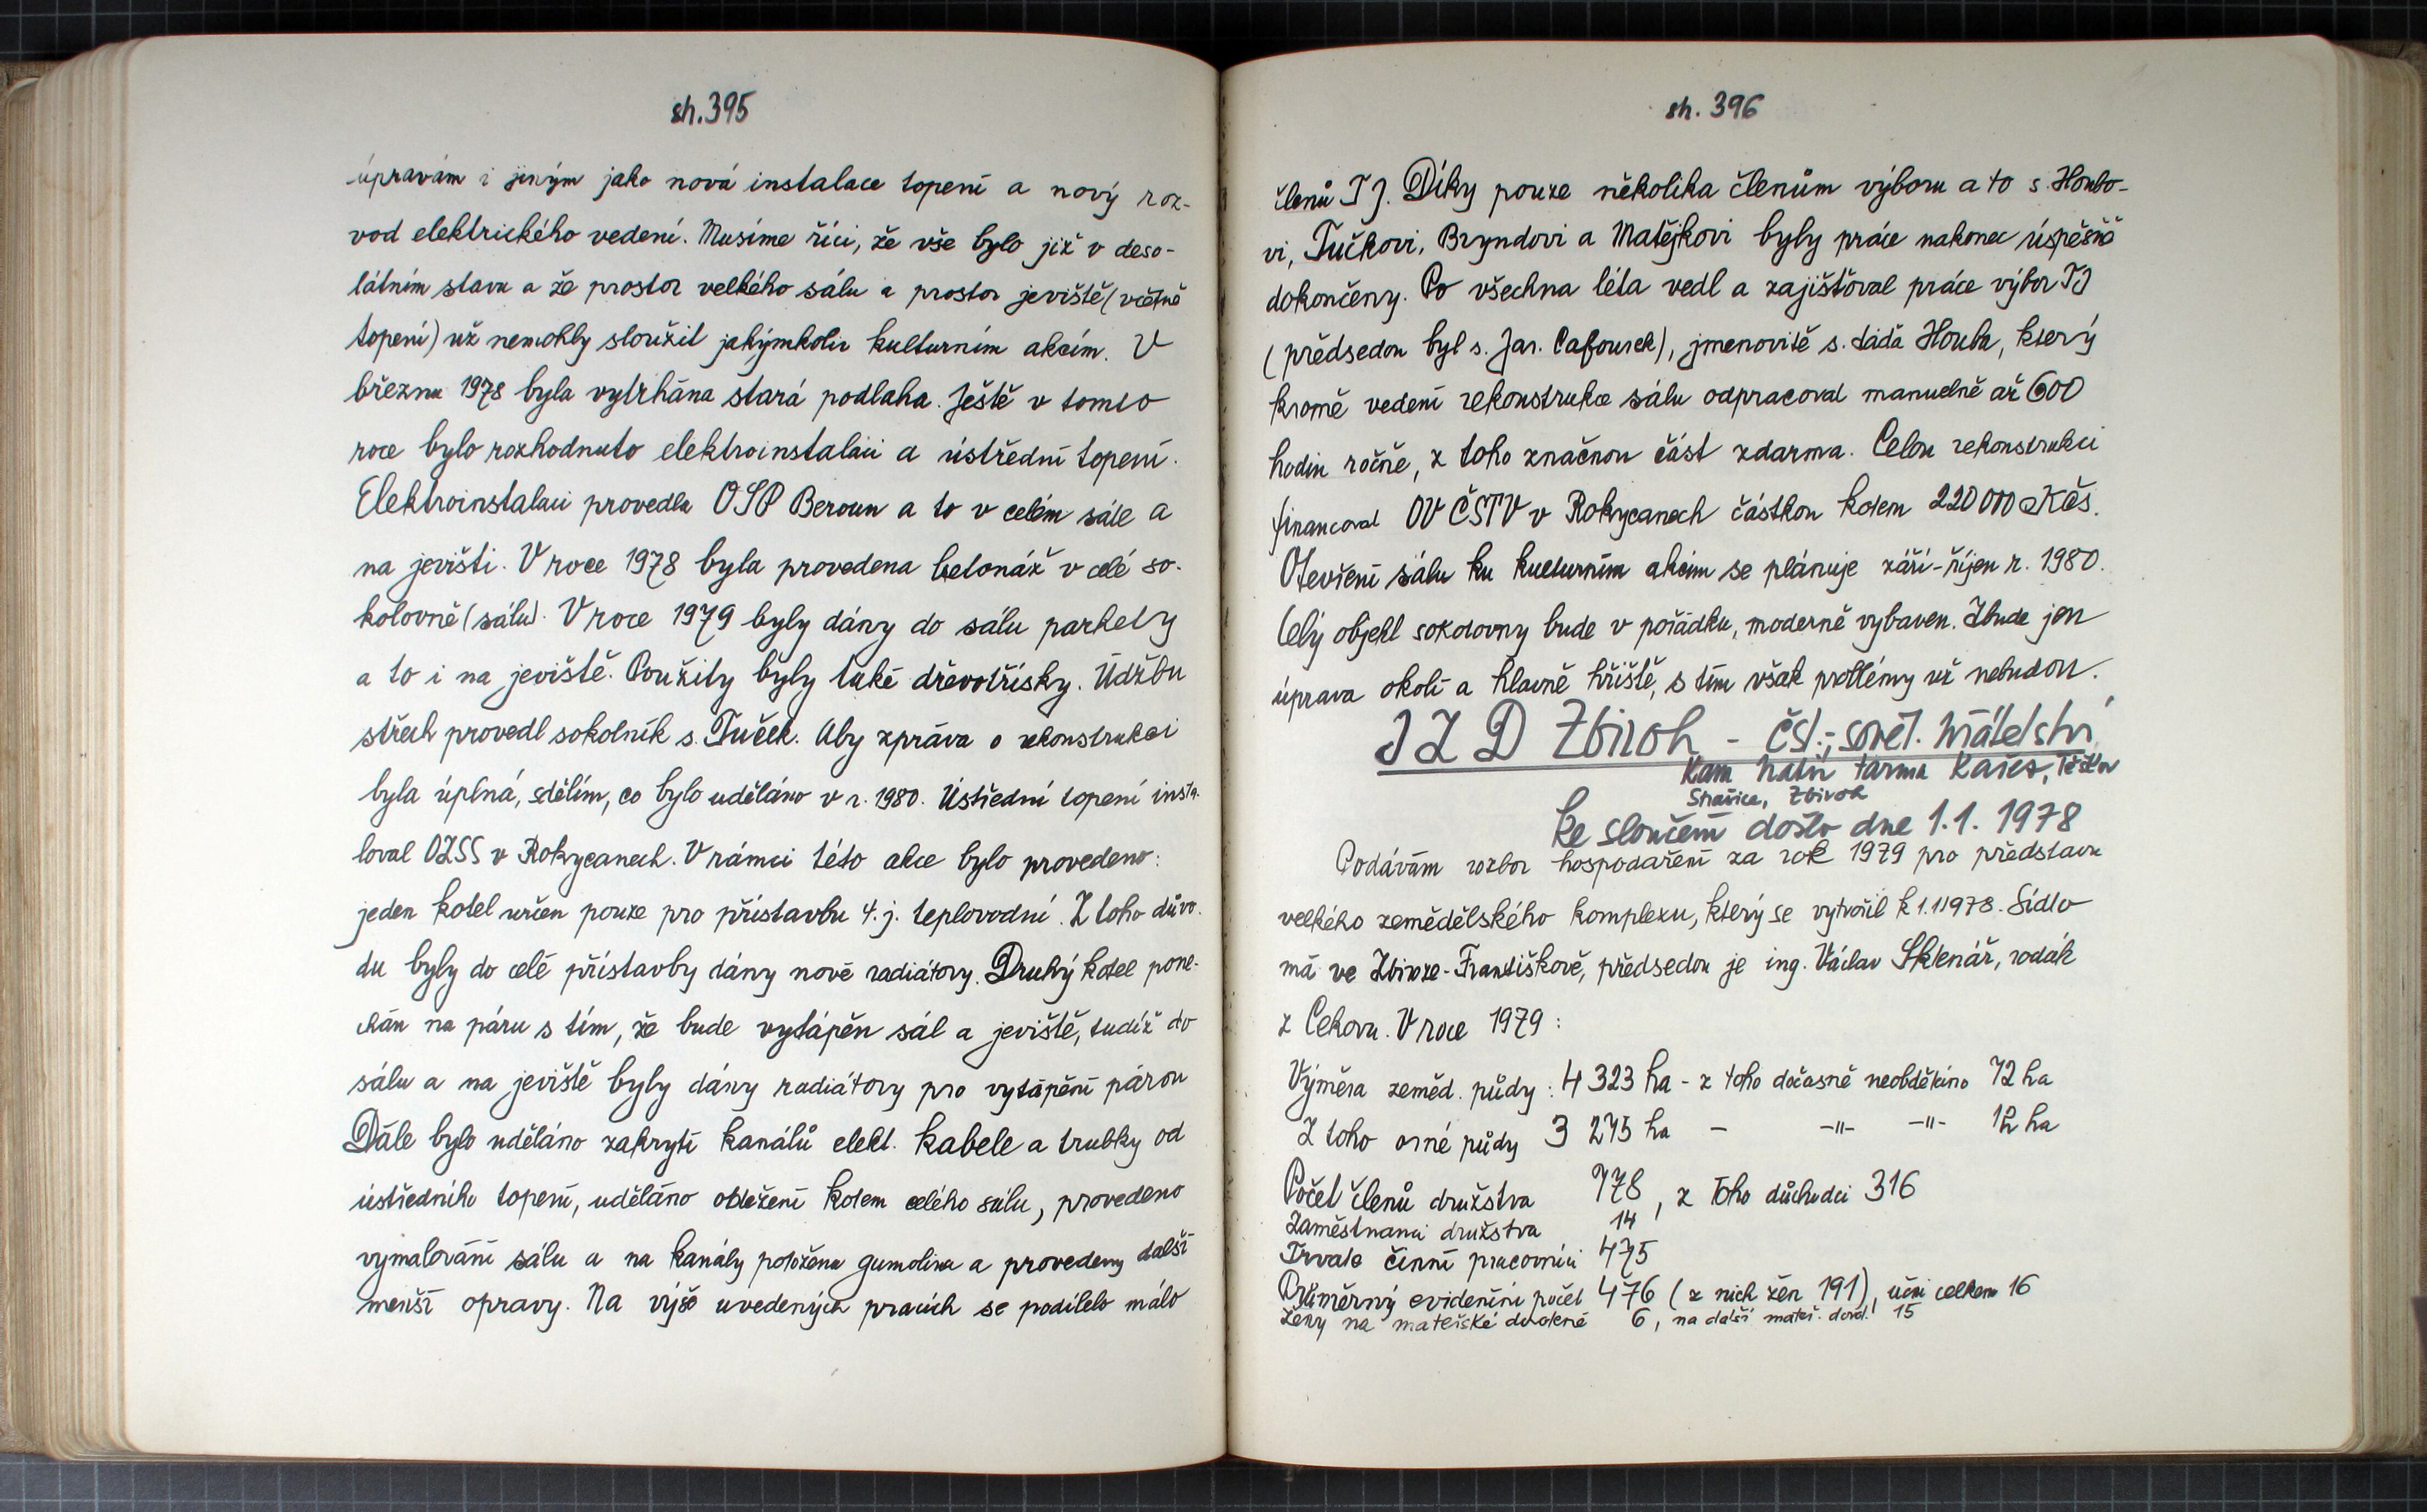 str. 395
úpravám i jiným jako nová instalace topení a nový roz-
vod elektrického vedení. Musíme říci, že vše bylo již v deso-
látním stavu a že prostor velkého sálu a prostor jeviště (včetně
topení) už nemohly sloužit jakýmkoliv kulturním akcím. V
březnu 1978 byla vytrhána stará podlaha. Ještě v tomto
roce bylo rozhodnuto elektroinstalaci a ústřední topení.
Elektroinstalaci provedla OSP Beroun a to v celém sále a
na jevišti. V roce 1978 byla provedena betonáž v celé so-
kolovně (sálu). V roce 1979 byly dány do sálu parkety
a to i na jeviště. Použity byly také dřevotřísky. Údržbu
střech provedl sokolník s. Tuček. Aby zpráva o rekonstrukci
byla úplná, sdělím, co bylo uděláno v r. 1980. Ústřední topení insta-
loval OZSS v Rokycanech. V rámci této akce bylo provedeno:
jeden kotel určen pouze pro přístavbu t. j. teplovodní. Z toho důvo-
du byly do celé přístavby dány nové radiátory. Druhý kotel pone-
chán na páru s tím, že bude vytápěn sál a jeviště, tudíž do
sálu a na jeviště byly dány radiátory pro vytápění párou
Dále bylo uděláno zakrytí kanálů elekt. kabele a trubky od
ústředního topení, uděláno obložení kolem celého sálu, provedeno
vymalování sálu a na kanály položena gumolina a provedeny další
menší opravy. Na výše uvedených pracích se podílelo málo
str. 396
členů TJ. Díky pouze několika členům výboru a to s. Houbo-
vi, Tučkovi, Bryndovi a Matějkovi byly práce nakonec úspěšně
dokončeny. Po všechna léta vedl a zajišťoval práce výbor TJ
(předsedou byl s. Jar. Cafourek), jmenovitě s. Láďa Houba, který
kromě vedení rekonstrukce sálu odpracoval manuelně až 600
hodin ročně, z toho značnou část zdarma. Celou rekonstrukci
financoval OV ČSTV v Rokycanech částkou kolem 220 000 Kčs.
Otevření sálu ku kulturním akcím se plánuje září-říjen r. 1980.
Celý objekt sokolovny bude v pořádku, moderně vybaven. Zbude jen
úprava okolí a hlavně hřiště, s tím však problémy už nebudou.
JZD Zbiroh - čsl.-sovět. přátelství
Kam patří farma Kařez, Těškov
Strašice, Zbiroh
Ke sloučení došlo dne 1.1. 1978
Podávám rozbor hospodaření za rok 1979 pro představu
velkého zemědělského komplexu, který se vytvořil k 1.1 1978. Sídlo
má ve Zbiroze-Františkově, předsedou je ing. Václav Sklenář, rodák
z Cekova. V roce 1979:
Výměra zeměd. půdy: 4 323 ha - z toho dočasně neobděláno 72 ha
Z toho orné půdy 3 275 ha - -"- -"- 12 ha
Počet členů družstva 778, z toho důchodci 316
Zaměstnanci družstva 14
Trvale činní pracovníci 475
Průměrný evidenční počet 476 (z nich žen 191), učni celkem 16
Ženy na mateřské dovolené 6, na další mateř. dovol. 15